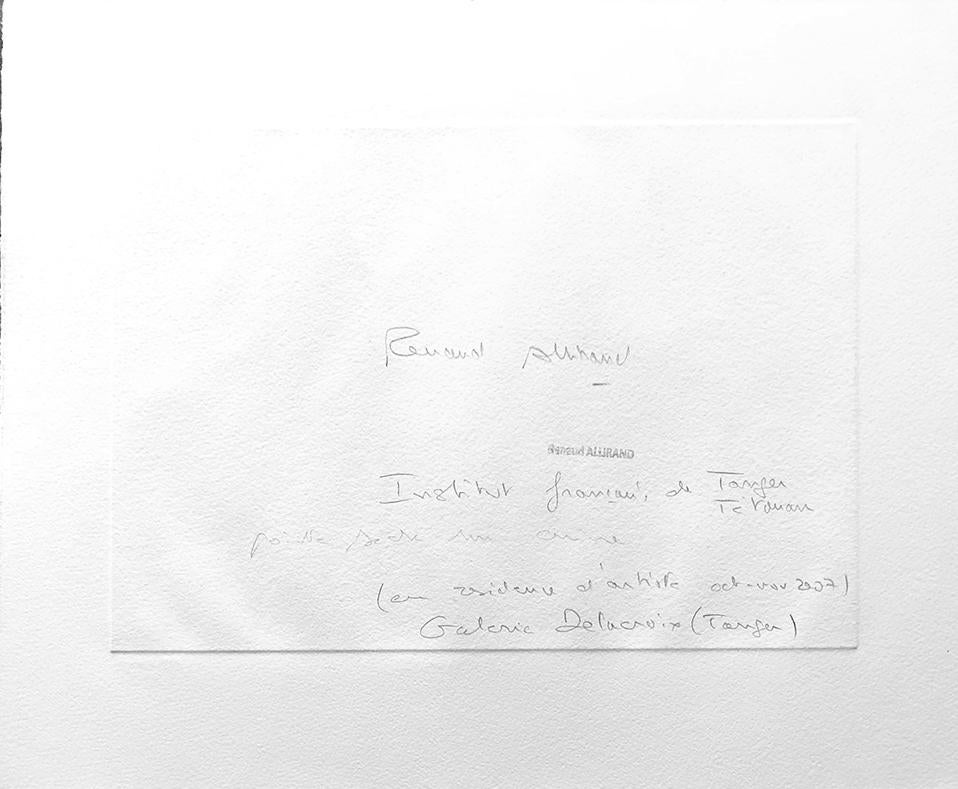 Renaud Allirand
Renaud ALLIRAND
Institut français de Tanger
Tétouan
pointe sèche sur cuivre
(en residence d'artiste oct-nov 2007)
Galerie Delacroix (Tanger)